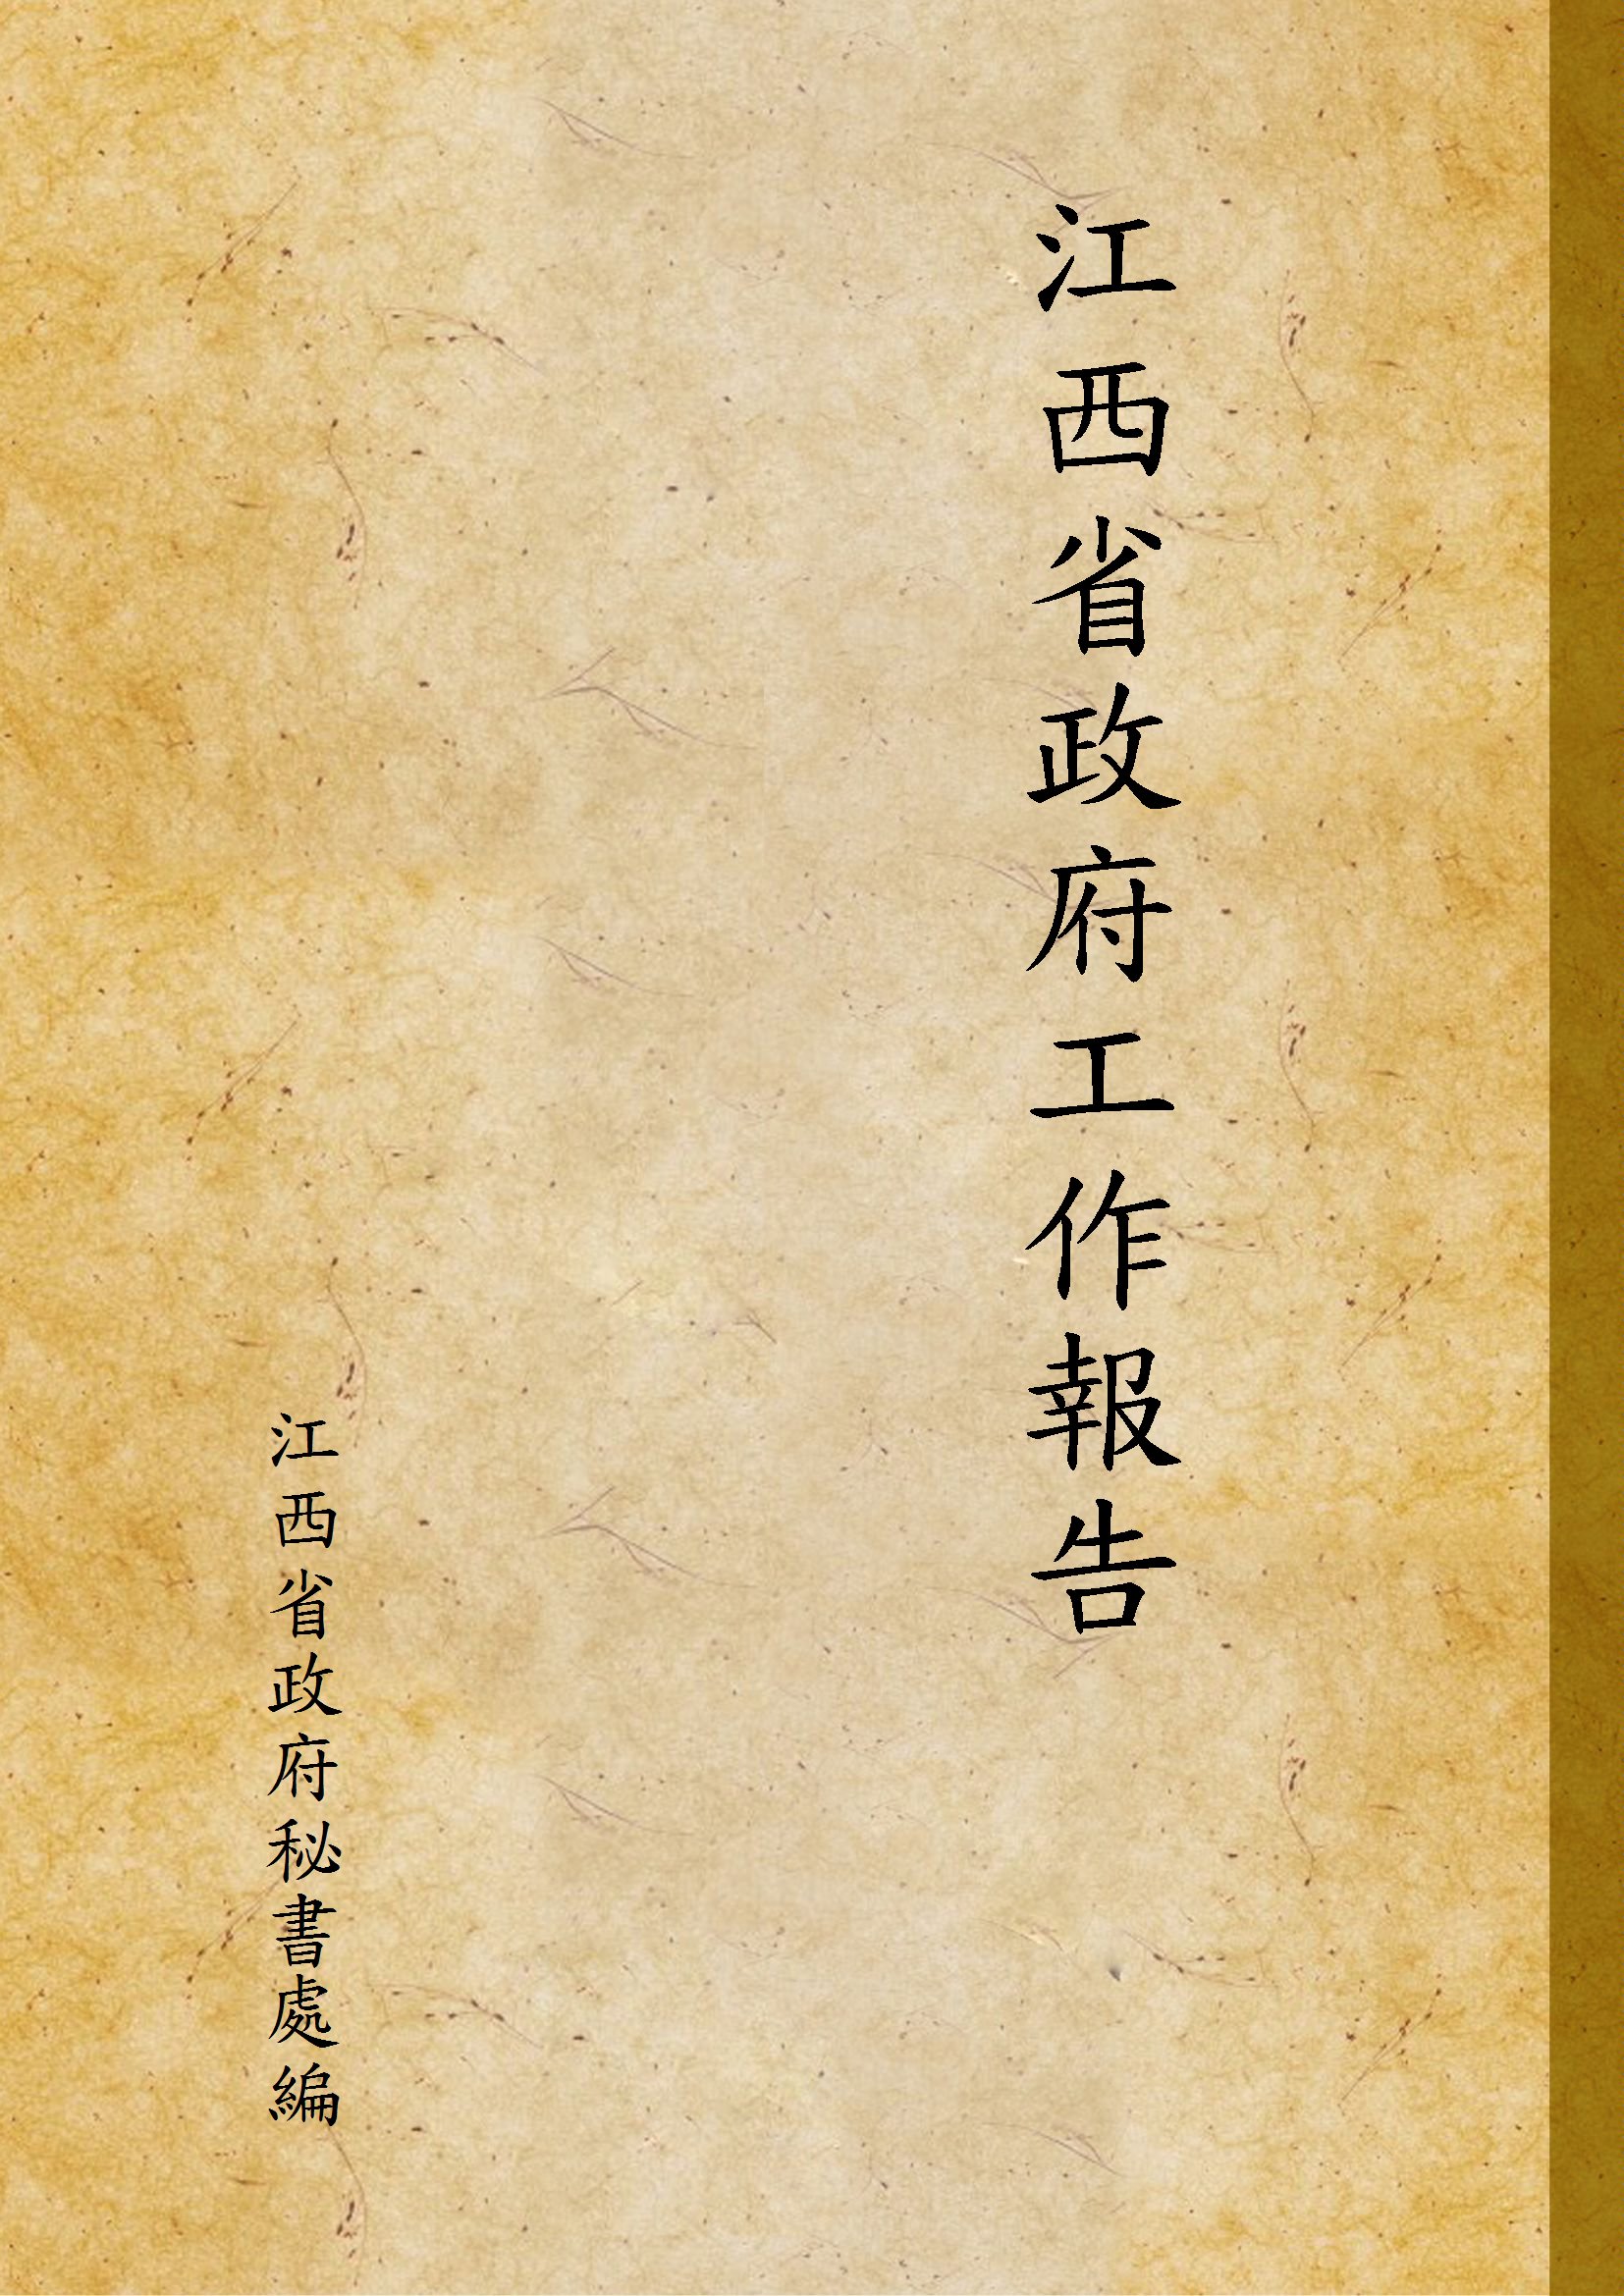 江西省政府工作報告
江西省政府秘書處編